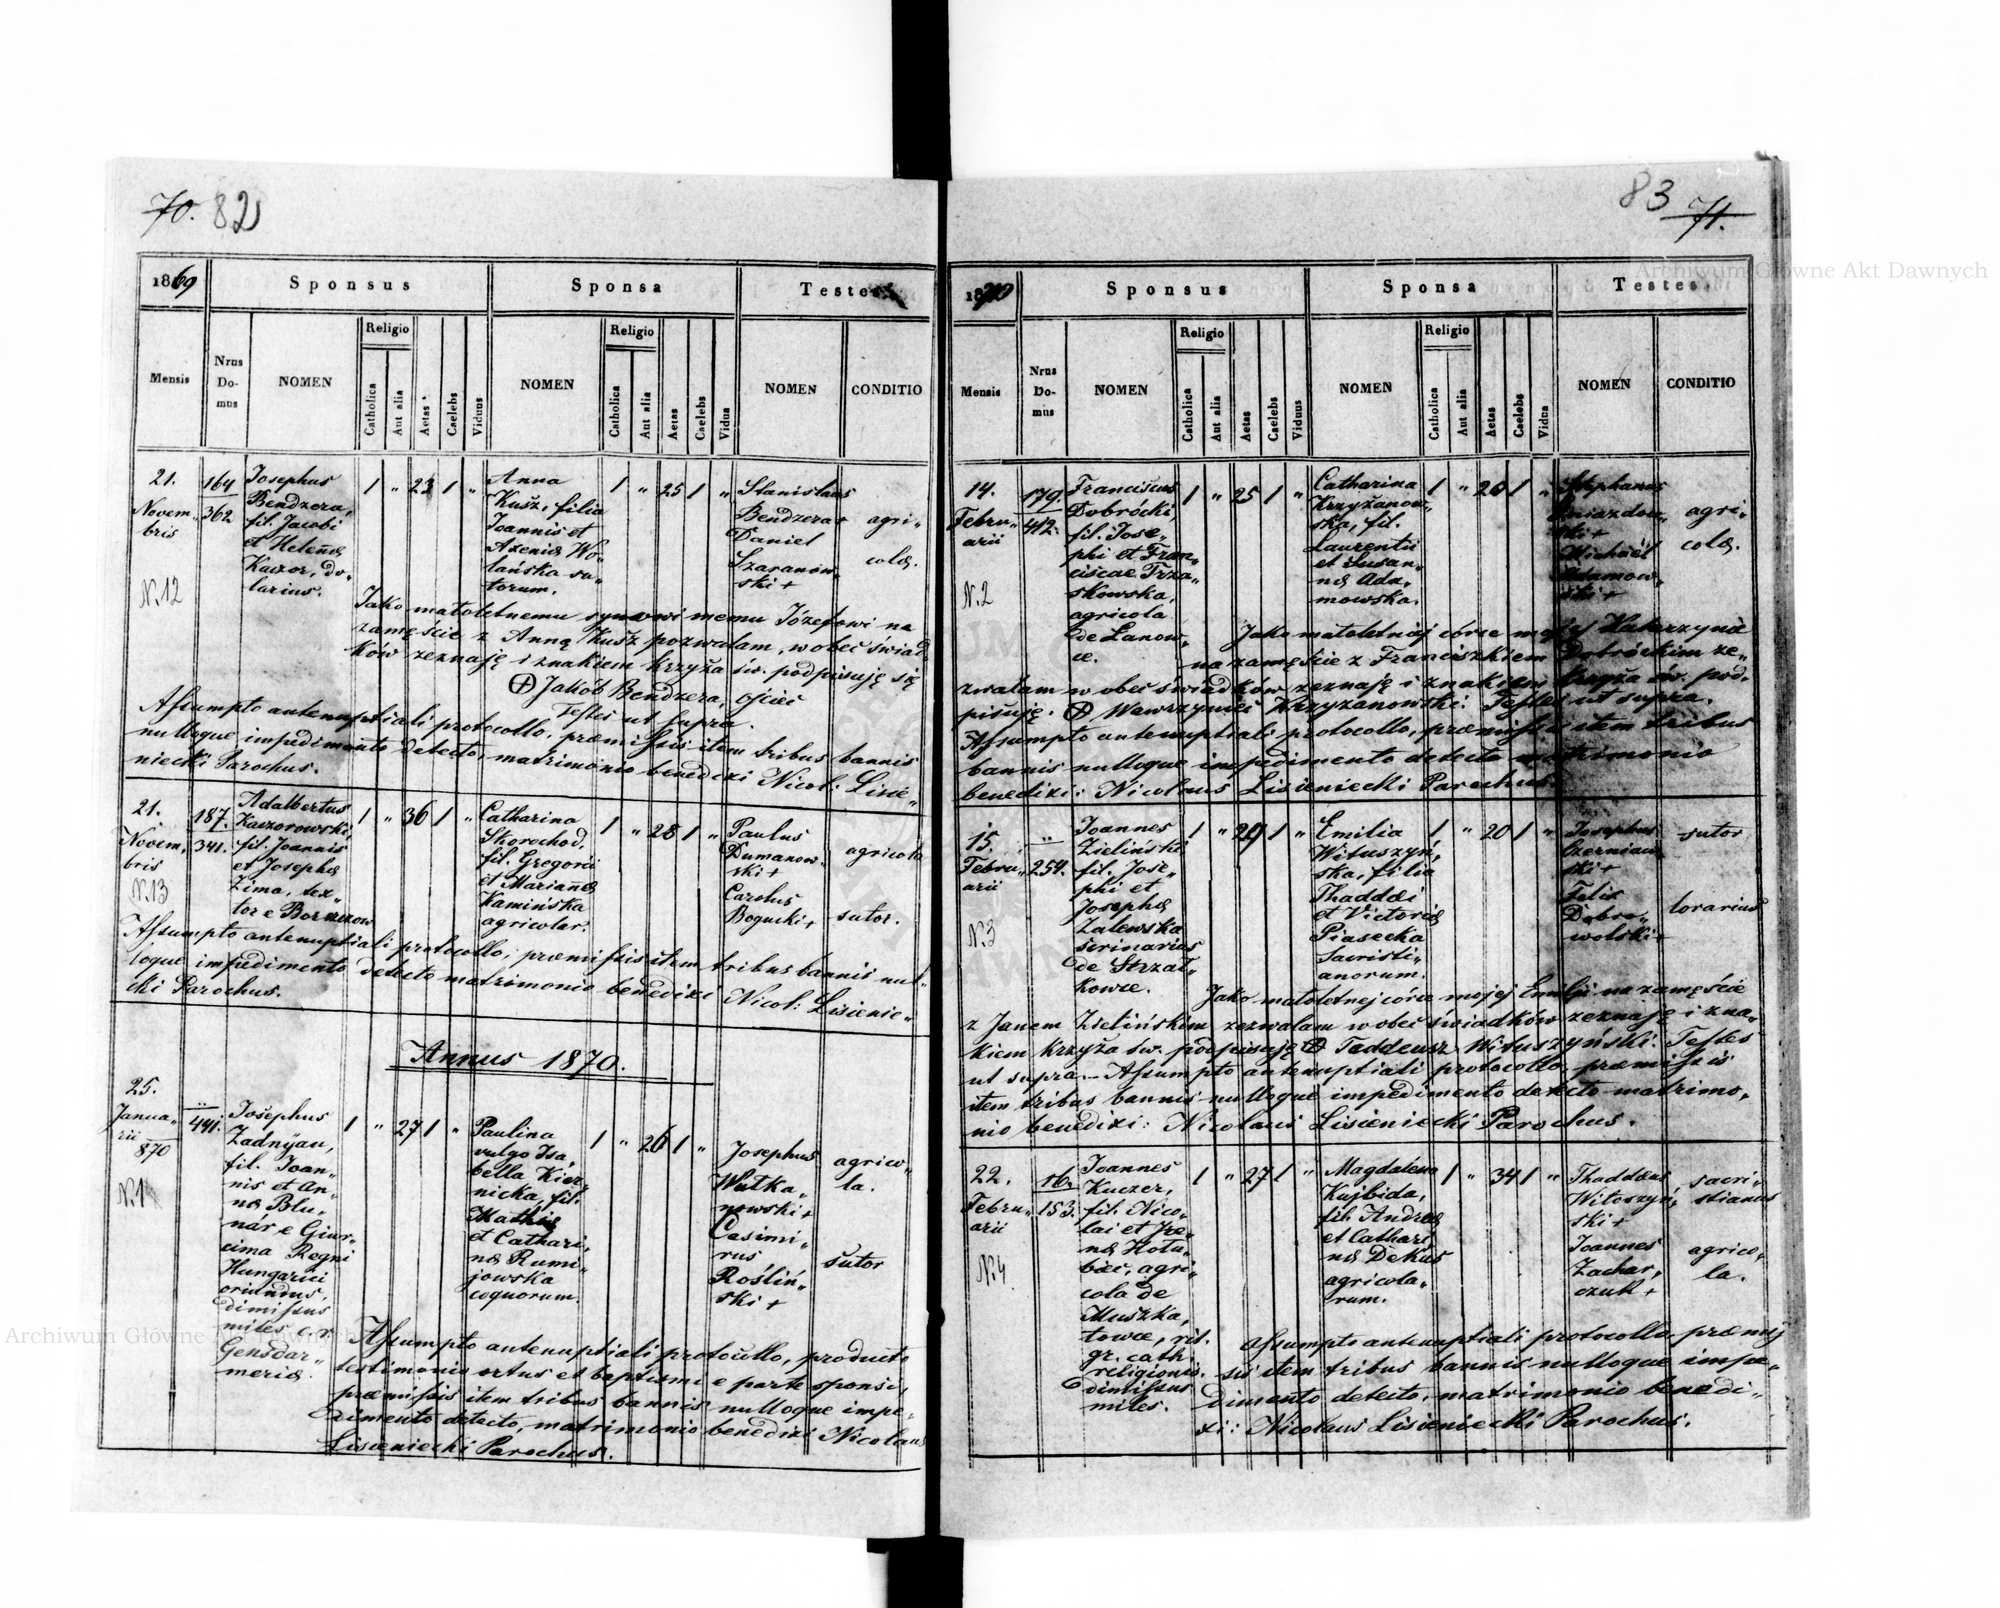 70. 82
1869
Sponsus
Sponsa
Testes
Mensis
Nrus Do- mus
NOMEN
Religio
Catholica
Aut alia
Aetas
Caelebs
Viduus
NOMEN
Religio
Catholica
Aut alia
Aetas
Caelebs
Vidua
NOMEN
CONDITIO
21.
Novem„
bris
N. 12
164
362
Josephus
Bendzera,
fil. Jacobi
et Helenæ
Kaczor, do„
larius.
1 „ 23 1 „
Anna
Kusz, filia
Joannis et
Axeniæ Wo„
lańska su„
torum.
1 „ 25 1 „
Stanislaus
Bendzera +
Daniel
Szaranow„
ski +
agri„
colæ.
Jako małoletnemu synowi memu Józefowi na
zamęście z Anną Kusz pozwalam, wobec świad„
ków zeznaję i znakiem krzyża św. podpisuję się
⊕ Jakób Bendzera, ojciec
Testes ut supra.
Assumpto antenuptiali protocollo, præmissis item tribus bannis
nulloque impedimento detecto, matrimonio benedixi Nicol: Lisie„
niecki Parochus.
21.
Novem„
bris
N. 13
187.
341.
Adalbertus
Kaczorowski,
fil. Joannis
et Josephæ
Zima, tex„
tor e
1 „ 36 1 „
Catharina
Skorochod,
fil. Gregorii
et Marianæ
Kamińska
agricolar.
1 „ 28 1 „
Paulus
Dumanow„
ski +
Carolus
Bogucki +
agricola
sutor.
Assumpto antenuptiali protocollo, præmissis item tribus bannis nul„
loque impedimento detecto matrimonio benedixi Nicol: Lisienie„
cki Parochus.
Annus 1870.
25.
Janua„
rii
870
N. 1
„
441.
Josephus
Zadnyan,
fil. Joan„
nis et An„
næ Blu„
nár e Giur„
cima Regni
Hungarici
oriundus,
dimissus
miles c. r.
Gensdar„
meriæ.
1 „ 27 1 „
Paulina
vulgo Isa„
bella Kier„
nicka, fil.
Mathiæ
et Cathari„
næ Rumi„
jowska
coquorum.
1 „ 26 1 „
Josephus
Wutka„
nowski +
Casimi„
rus
Rośliń„
ski +
agrico„
la.
sutor
Assumpto antenuptiali protocollo, producto
testimonio ortus et baptismi e parte sponsi,
præmissis item tribus bannis nulloque impe„
dimento detecto, matrimonio benedixi Nicolaus
Lisieniecki Parochus.
83 71.
1870
Sponsus
Sponsa
Testes.
Mensis
Nrus Do- mus
NOMEN
Religio
Catholica
Aut alia
Aetas
Caelebs
Viduus
NOMEN
Religio
Catholica
Aut alia
Aetas
Caelebs
Vidua
NOMEN
CONDITIO
14.
Febru„
arii
N. 2
179.
412.
Franciscus
Dobrócki,
fil. Jose„
phi et Fran„
ciscae Trza„
skowska,
agricola
de Łanow„
ce.
1 „ 25 1 „
Catharina
Krzyżanow„
ska, fil.
Laurentii
et Susan„
næ Ada„
mowska.
1 „ 20 1 „
Stephanus
Gniazdow„
ski +
Michaël
Adamow„
ski +
agri„
colæ.
Jako małoletniej córce mojej Katarzynie
na zamęście z Franciszkiem Dobróckim ze„
zwalam w obec świadków zeznaję i znakiem krzyża św. pod„
pisuję. ⊕ Wawrzyniec Krzyżanowski. Testes ut supra.
Assumpto antenuptiali protocollo, præmissis item tribus
bannis nulloque impedimento detecto matrimonio
benedixi: Nicolaus Lisieniecki Parochus.
15.
Febru„
arii
N. 3
„
254.
Joannes
Zieliński
fil. Jose„
phi et
Josephæ
Zalewska
scrinarius
de Strzał„
kowce.
1 „ 29 1 „
Emilia
Wituszyń„
ska, filia
Thaddæi
et Victoriæ
Piasecka
Sacristi„
anorum.
1 „ 20 1 „
Josephus
Czerniaw„
ski +
Felix
Dobro„
wolski +
sutor
lorarius
Jako małoletnej córce mojej Emilji na zamęście
z Janem Zielińskim zezwalam w obec świadków zeznaję i zna„
kiem krzyża św. podpisuję ⊕ Taddeusz Wituszyński. Testes
ut supra. — Assumpto antenuptiali protocollo, præmissis
item tribus bannis nulloque impedimento detecto matrimo„
nio benedixi: Nicolaus Lisieniecki Parochus.
22.
Febru„
arii
N. 4
16.
153.
Joannes
Kuczer,
fil. Nico„
lai et Ire„
næ Hołu„
biec, agri„
cola de
Muszka„
towce, rit.
gr. cath.
religionis.
dimissus
miles.
1 „ 27 1 „
Magdalena
Kujbida,
fil. Andreæ
et Cathari
næ Dekas
agricola„
rum.
1 „ 34 1 „
Thaddæus
Witoszyń„
ski +
Joannes
Zachar„
czuk +
sacri„
stianus
agrico„
la.
Assumpto antenuptiali protocollo, præmis
sis item tribus bannis nulloque impe„
dimento detecto, matrimonio benedi„
xi: Nicolaus Lisieniecki Parochus.
Archiwum Główne Akt Dawnych
Archiwum Główne Akt Dawnych